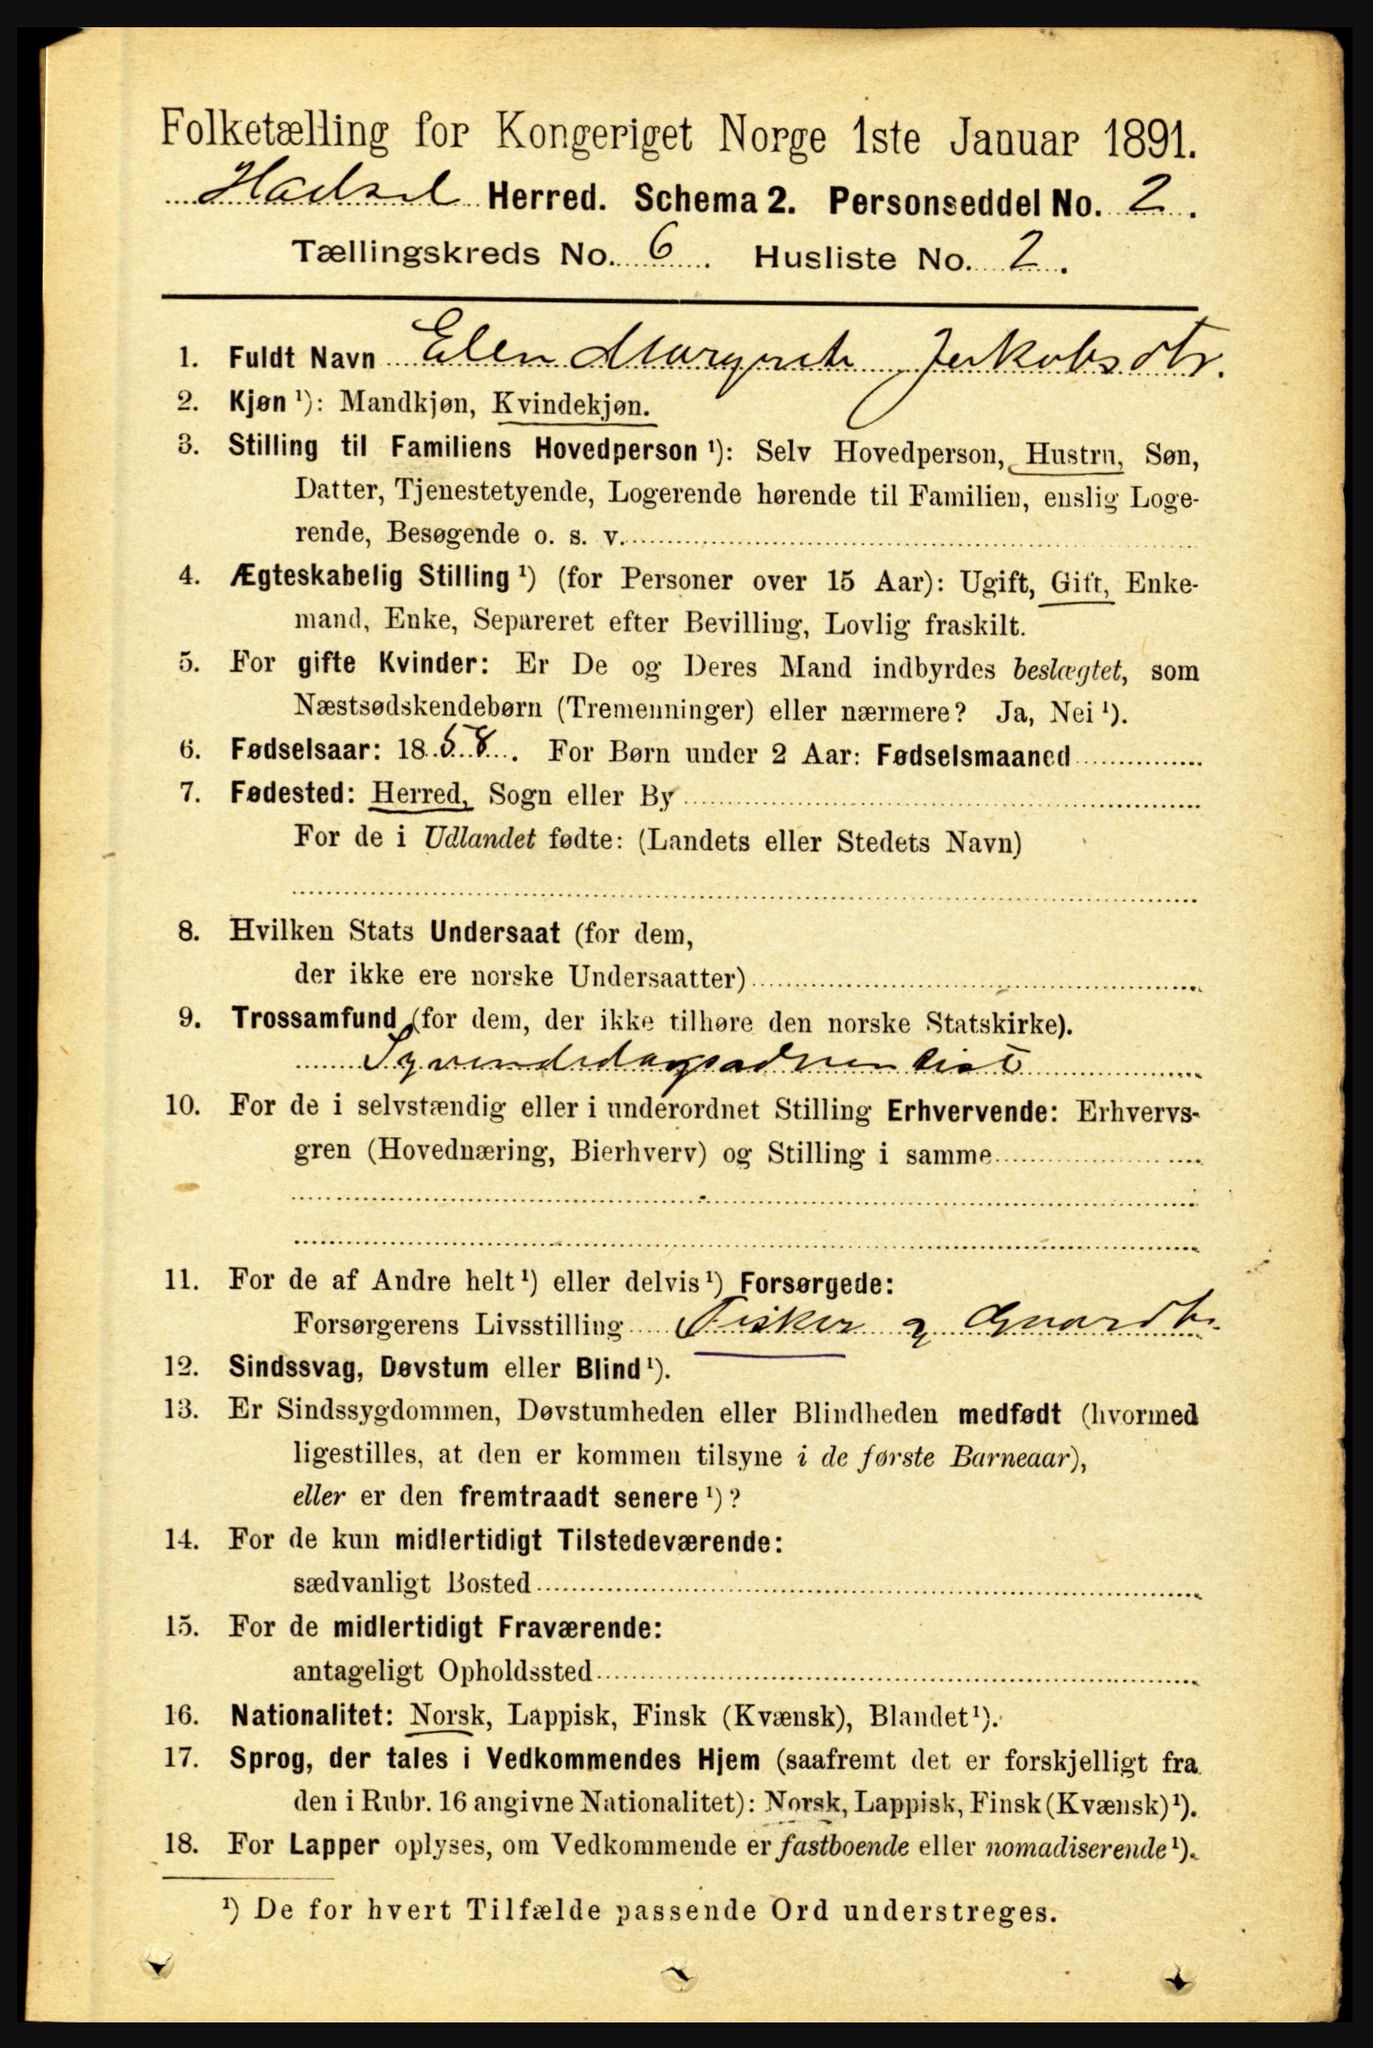 Folketælling for Kongeriget Norge 1ste Januar 1891.
Hadsel Herred. Schema 2. Personseddel No. 2.
Tællingskreds No. 6. Husliste No. 2.
1. Fuldt Navn Elen Margrete Jakobsdtr.
2. Kjøn ¹): Mandkjøn, Kvindekjøn.
3. Stilling til Familiens Hovedperson ¹): Selv Hovedperson, Hustru, Søn,
Datter, Tjenestetyende, Logerende hørende til Familien, enslig Loge-
rende, Besøgende o. s. v.
4. Ægteskabelig Stilling ¹) (for Personer over 15 Aar): Ugift, Gift, Enke-
mand, Enke, Separeret efter Bevilling, Lovlig fraskilt.
5. For gifte Kvinder: Er De og Deres Mand indbyrdes beslægtet, som
Næstsødskendebørn (Tremenninger) eller nærmere? Ja, Nei ¹).
6. Fødselsaar: 1858. For Børn under 2 Aar: Fødselsmaaned
7. Fødested: Herred, Sogn eller By
For de i Udlandet fødte: (Landets eller Stedets Navn)
8. Hvilken Stats Undersaat (for dem,
der ikke ere norske Undersaatter)
9. Trossamfund (for dem, der ikke tilhøre den norske Statskirke).
Syvendedagsadventist
10. For de i selvstændig eller i underordnet Stilling Erhvervende: Erhvervs-
gren (Hovednæring, Bierhverv) og Stilling i samme
11. For de af Andre helt ¹) eller delvis ¹) Forsørgede:
Forsørgerens Livsstilling Fisker og Gaardbr.
12. Sindssvag, Døvstum eller Blind ¹).
13. Er Sindssygdommen, Døvstumheden eller Blindheden medfødt (hvormed
ligestilles, at den er kommen tilsyne i de første Barneaar),
eller er den fremtraadt senere ¹)?
14. For de kun midlertidigt Tilstedeværende:
sædvanligt Bosted
15. For de midlertidigt Fraværende:
antageligt Opholdssted
16. Nationalitet: Norsk, Lappisk, Finsk (Kvænsk), Blandet ¹).
17. Sprog, der tales i Vedkommendes Hjem (saafremt det er forskjelligt fra
den i Rubr. 16 angivne Nationalitet): Norsk, Lappisk, Finsk (Kvænsk) ¹).
18. For Lapper oplyses, om Vedkommende er fastboende eller nomadiserende ¹).
¹) De for hvert Tilfælde passende Ord understreges.